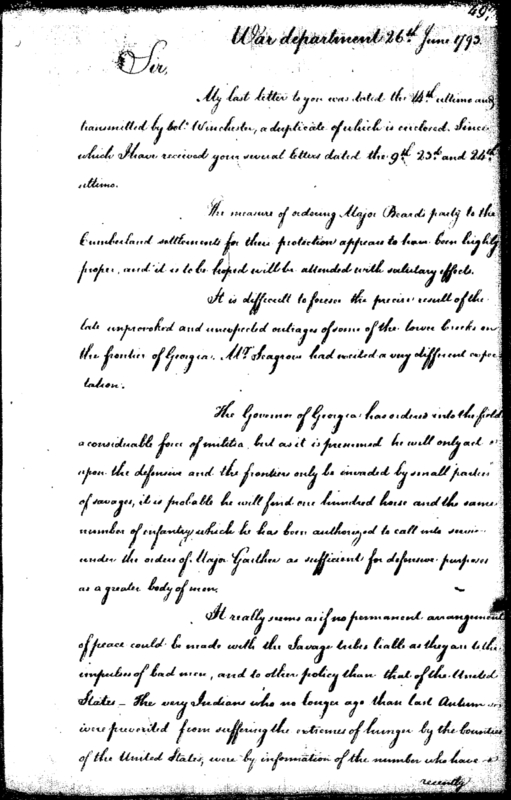 49.
War department 26th June 1793
Sir,
My last letter to you was dated the 4th ultimo and
transmitted by Colo. Winchester, a duplicate of which is enclosed. Since
which I have received your several letters dated the 9th 23d and 24th
ultimo.
The measure of ordering Major Beards party to the
Cumberland settlements for their protection appears to have been highly
proper, and it is to be hoped will be attended with salutary effects.
It is difficult to foresee the precise result of the
late unprovoked and unexpected outrages of some of the lower Creeks on
the frontier of Georgia. Mr. Seagrove had excited a very different expec
tation.
The Governor of Georgia has ordered into the field
a considerable force of militia, but as it is presumed he will only act
upon the defensive and the frontiers only be invaded by small parties
of savages, it is probable he will find one hundred horse and the same
number of infantry which he has been authorized to call into service
under the orders of Major Gaither as sufficient for defensive purposes
as a greater body of men.
It really seems as if no permanent arrangement
of peace could be made with the Savage tribes liable as they are to the
impulses of bad men, and to other policy than that of the United
States – The very Indians who no longer ago than last Autumn
were prevented from suffering the extremes of hunger by the bounties
of the United States, were by information of the number who have
recently